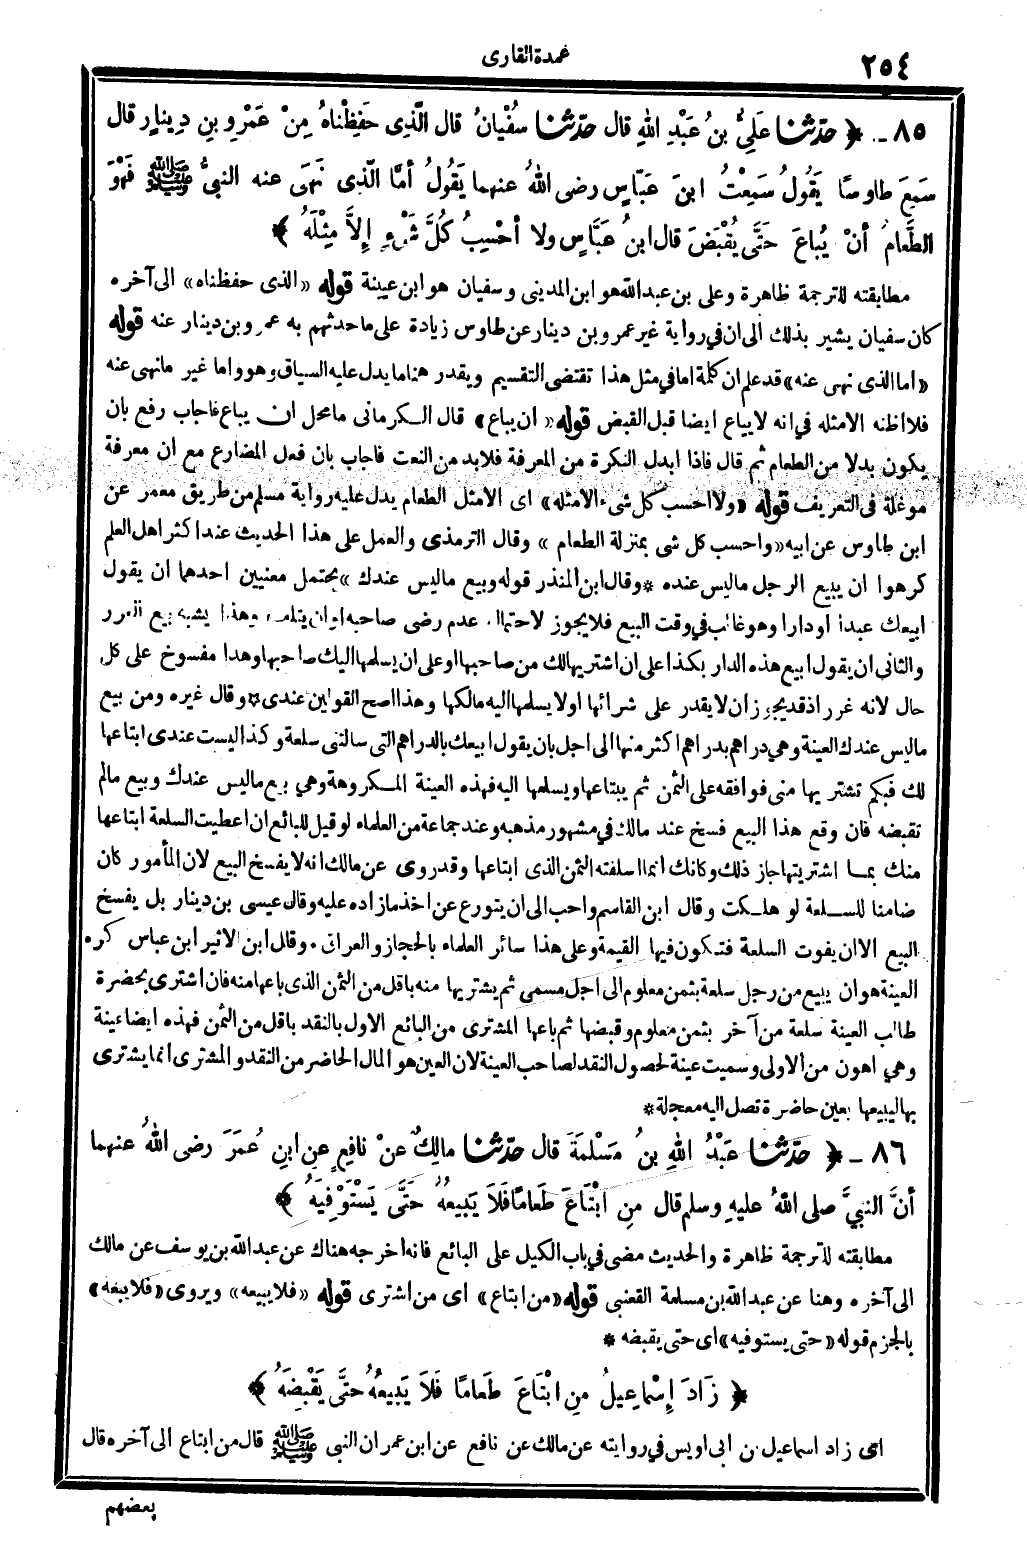 ٢٥٤
عمدة القارى
٨٥ - ﴿ حَدَّثَنَا عَلِىُّ بنُ عَبْدِ اللهِ قال حَدَّثَنَا سُفْيَانُ قال الَّذِى حَفِظْنَاهُ مِنْ عَمْرِو بنِ دِينارٍ قال
سَمِعَ طاوسًا يَقُولُ سَمِعْتُ ابنَ عَبَّاسٍ رضى اللهُ عنهما يَقُولُ أمَّا الَّذِى نَهَى عنه النبىُّ ﷺ فَهْوَ
الطَّعامُ أنْ يُباعَ حَتَّى يُقْبَضَ قال ابنُ عَبَّاسٍ ولا أحْسِبُ كُلَّ شَىْءٍ إلاَّ مِثْلَهُ ﴾
مطابقته للترجمة ظاهرة وعلى بن عبدالله هو ابن المدينى وسفيان هو ابن عيينة قوله «الذى حفظناه» الى آخره
كان سفيان يشير بذلك الى ان في رواية غير عمرو بن دينار عن طاوس زيادة على ما حدثهم به عمرو بن دينار عنه قوله
«اما الذى نهى عنه» قد علم ان كلمة اما في مثل هذا تقتضى التقسيم ويقدر هنا ما يدل عليه السياق وهو واما غير ما نهى عنه
فلا اظنه الا مثله في انه لا يباع ايضا قبل القبض قوله «ان يباع» قال الكرمانى ما محل ان يباع فاجاب رفع بان
يكون بدلا من الطعام ثم قال فاذا ابدل النكرة من المعرفة فلابد من النعت فاجاب بان فعل المضارع مع ان معرفة
موغلة فى التعريف قوله «ولا احسب كل شىء الا مثله» اى الا مثل الطعام يدل عليه رواية مسلم من طريق معمر عن
ابن طاوس عن ابيه «واحسب كل شى بمنزلة الطعام» وقال الترمذى والعمل على هذا الحديث عند اكثر اهل العلم
كرهوا ان يبيع الرجل ما ليس عنده * وقال ابن المنذر قوله وبيع ما ليس عندك» يحتمل معنيين احدهما ان يقول
ابيعك عبدا او دارا وهو غائب في وقت البيع فلا يجوز لاحتمال عدم رضى صاحبه او ان يتلف وهذا يشبه بيع الغرر
والثانى ان يقول ابيع هذه الدار بكذا على ان اشتريها لك من صاحبها او على ان يسلمها اليك صاحبها وهذا مفسوخ على كل
حال لانه غرر اذ قد يجوز ان لا يقدر على شرائها او لا يسلمها اليه مالكها وهذا اصح القولين عندى * وقال غيره ومن بيع
ما ليس عندك العينة وهي دراهم بدراهم اكثر منها الى اجل بان يقول ابيعك بالدراهم التى سالتنى سلعة وكذا ليست عندى ابتاعها
لك فبكم تشتريها منى فوافقه على الثمن ثم يبتاعها ويسلمها اليه فهذه العينة المكروهة وهي بيع ما ليس عندك وبيع مالم
تقبضه فان وقع هذا البيع فسخ عند مالك في مشهور مذهبه وعند جماعة من العلماء لو قيل للبائع ان اعطيت السلعة ابتاعها
منك بما اشتريتها جاز ذلك وكانك انما اسلفته الثمن الذى ابتاعها وقد روى عن مالك انه لا يفسخ البيع لان المأمور كان
ضامنا للسلعة لو هلكت وقال ابن القاسم واحب الى ان يتورع عن اخذ مازاده عليه وقال عيسى بن دينار بل يفسخ
البيع الا ان يفوت السلعة فتكون فيها القيمة وعلى هذا سائر العلماء بالحجاز والعراق . وقال ابن الاثير ابن عباس كره
العينة هو ان يبيع من رجل سلعة بثمن معلوم الى اجل مسمى ثم يشتريها منه باقل من الثمن الذى باعها منه فان اشترى بحضرة
طالب العينة سلعة من آخر بثمن معلوم وقبضها ثم باعها المشترى من البائع الاول بالنقد باقل من الثمن فهذه ايضا عينة
وهي اهون من الاولى وسميت عينة لحصول النقد لصاحب العينة لان العين هو المال الحاضر من النقد والمشترى انما يشترى
بها ليبيعها بعين حاضرة تصل اليه معجلة *
٨٦ - ﴿ حَدَّثَنَا عَبْدُ اللهِ بنُ مَسْلَمَةَ قال حَدَّثَنَا مالِكٌ عنْ نافِعٍ عنِ ابنِ عُمَرَ رضى اللهُ عنهما
أنَّ النبيَّ صلى اللهُ عليهِ وسلم قال منِ ابْتَاعَ طَعَامًا فَلاَ يَبِيعُهُ حَتَّى يَسْتَوْفِيَهُ ﴾
مطابقته للترجمة ظاهرة والحديث مضى في باب الكيل على البائع فانه اخرجه هناك عن عبدالله بن يوسف عن مالك
الى آخره وهنا عن عبدالله بن مسلمة القعنبى قوله «من ابتاع» اى من اشترى قوله «فلا يبيعه» ويروى «فلا يبعه»
بالجزم قوله «حتى يستوفيه» اى حتى يقبضه *
﴿ زَادَ إِسْماعِيلُ مَنِ ابْتَاعَ طَعامًا فَلاَ يَبِيعُهُ حتَّى يَقْبِضَهُ ﴾
اى زاد اسماعيل بن ابى اويس في روايته عن مالك عن نافع عن ابن عمر ان النبى ﷺ قال من ابتاع الى آخره قال
بعضهم